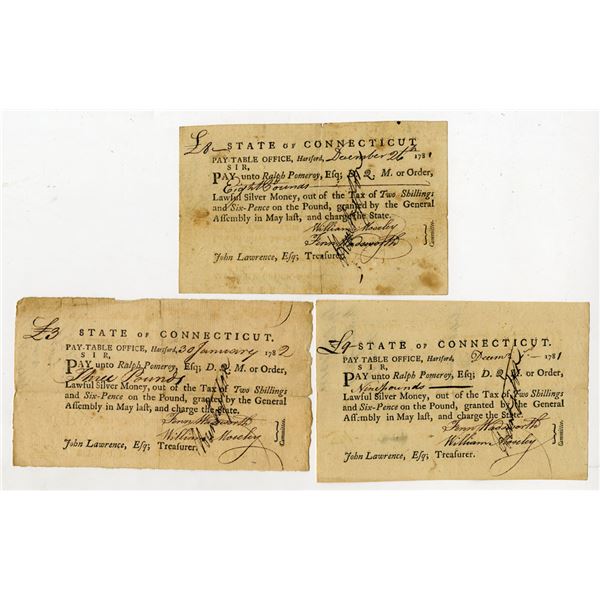 £8— STATE OF CONNECTICUT.
PAY-TABLE OFFICE, Hartford, December 26th 1781
SIR,
PAY unto Ralph Pomeroy, Esq; D. Q. M. or Order,
Eight Pounds
Lawful Silver Money, out of the Tax of Two Shillings
and Six-Pence on the Pound, granted by the General
Assembly in May last, and charge the State.
William Moseley
Fenn Wadsworth
Committee.
John Lawrence, Esq; Treasurer.
£3 STATE OF CONNECTICUT.
PAY-TABLE OFFICE, Hartford, 30 January 1782
SIR,
PAY unto Ralph Pomeroy, Esq; D. Q. M. or Order,
Three Pounds
Lawful Silver Money, out of the Tax of Two Shillings
and Six-Pence on the Pound, granted by the General
Assembly in May last, and charge the State.
Fenn Wadsworth
William Moseley
Committee.
John Lawrence, Esq; Treasurer.
£9— STATE OF CONNECTICUT.
PAY-TABLE OFFICE, Hartford, 1781
SIR,
PAY unto Ralph Pomeroy, Esq; D. Q. M. or Order,
Nine pounds
Lawful Silver Money, out of the Tax of Two Shillings
and Six-Pence on the Pound, granted by the General
Assembly in May last, and charge the State.
Fenn Wadsworth
William Moseley
Committee.
John Lawrence, Esq; Treasurer.